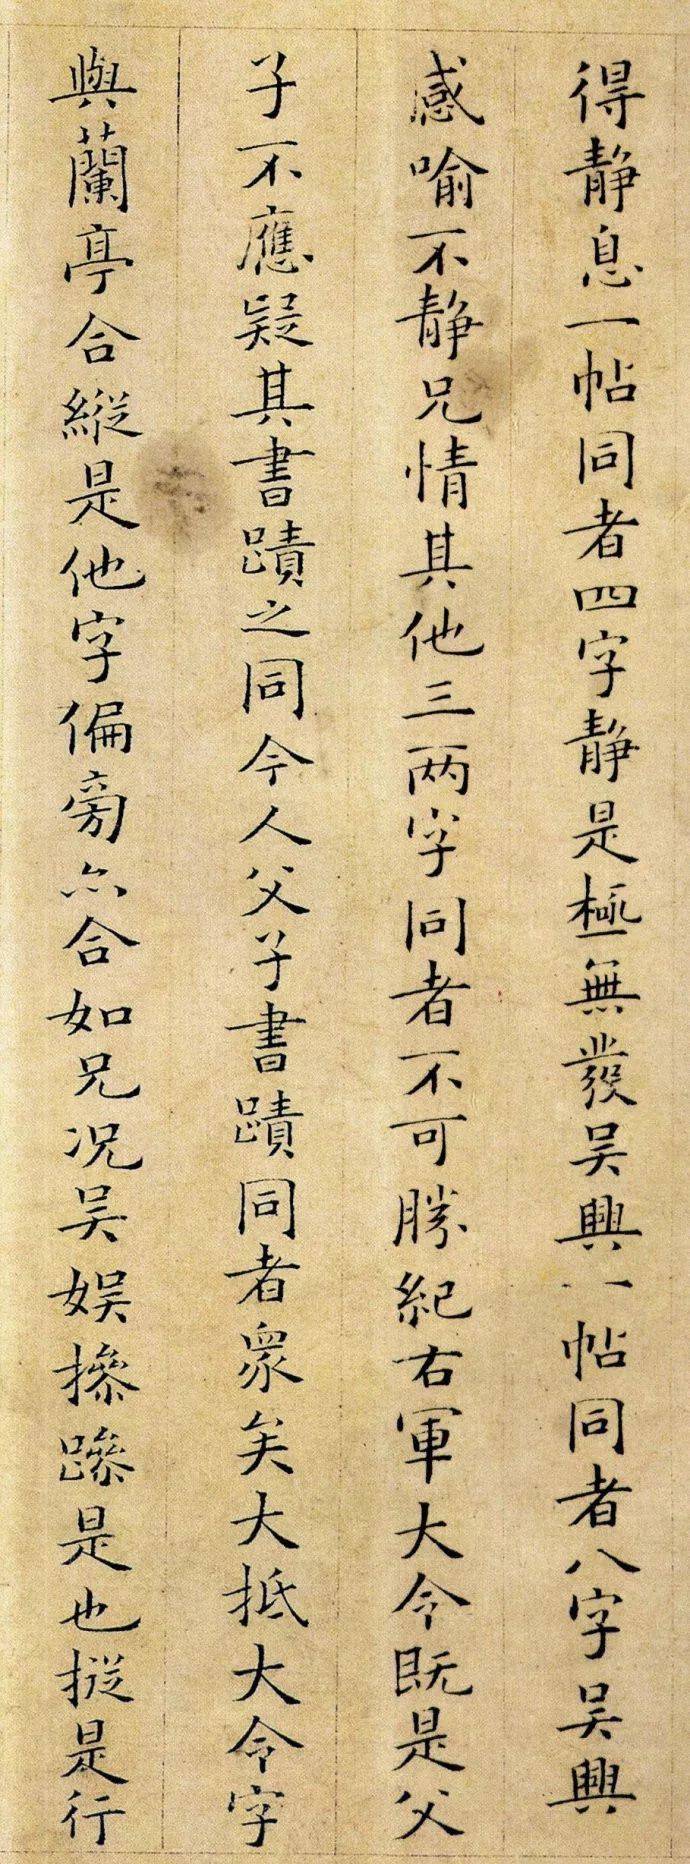 得静息一帖同者四字静是極無發吴興一帖同者八字吴興
感喻不静兄情其他三两字同者不可勝紀右軍大令既是父
子不應疑其書蹟之同今人父子書蹟同者衆矣大抵大令字
與蘭亭合縱是他字偏旁亦合如兄况吴娱摻蹂是也挺是行